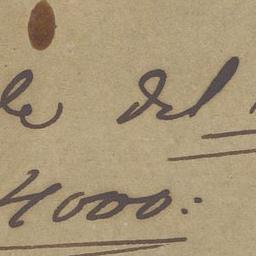 le del
4000: